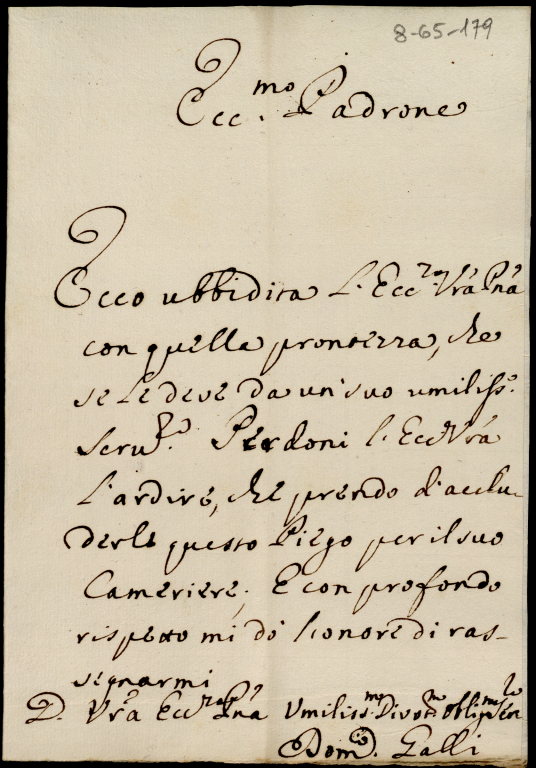 8-65-179
Ecc.mo Padrone
Ecco ubbidita l'Ecc.za Vrã Pnã
con quella prontezza, che
se le deve da un' suo umiliss.o
Serv.re. Perdoni l'Ecc.za Vrã
l'ardire, che prendo d'acclu-
derle questo Piego per il suo
Cameriere; E con profondo
rispetto mi dò l'onore di ras-
segnarmi
D. Vrã Ecc.za Pnã Umiliss.mo Divot.mo Oblig.mo
Dom.co Galli